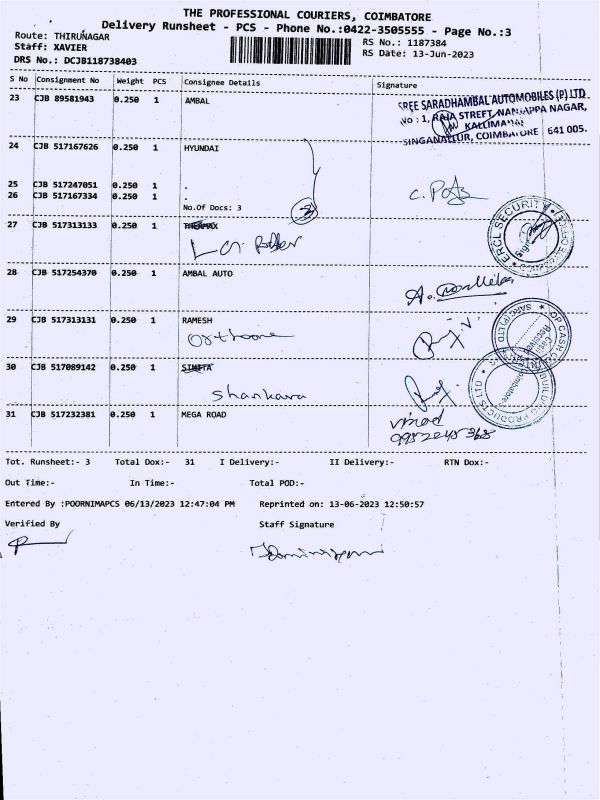 THE PROFESSIONAL COURIERS, COIMBATORE
Delivery Runsheet - PCS - Phone No.:0422-3505555 - Page No.:3
Route: THIRUNAGAR
RS No.: 1187384
Staff: XAVIER
RS Date: 13-Jun-2023
DRS No.: DCJB118738403
S No Consignment No Weight PCS Consignee Details Signature
23 CJB 89581943 0.250 1 AMBAL
SREE SARADHAMBAL AUTOMOBILES (P) LTD
No : 1, RAJA STREET, NANJAPPA NAGAR,
KALLIMADAI
SINGANALLUR, COIMBATORE 641 005.
24 CJB 517167626 0.250 1 HYUNDAI
25 CJB 517247051 0.250 1 .
26 CJB 517167334 0.250 1 .
No.Of Docs: 3
27 CJB 517313133 0.250 1
ERCL SECURITY
28 CJB 517254370 0.250 1 AMBAL AUTO
29 CJB 517313131 0.250 1 RAMESH
30 CJB 517089142 0.250 1
Shankara
BUILDING PRODUCTS LTD
31 CJB 517232381 0.250 1 MEGA ROAD
vinod
Tot. Runsheet:- 3 Total Dox:- 31 I Delivery:- II Delivery:- RTN Dox:-
Out Time:- In Time:- Total POD:-
Entered By :POORNIMAPCS 06/13/2023 12:47:04 PM Reprinted on: 13-06-2023 12:50:57
Verified By Staff Signature